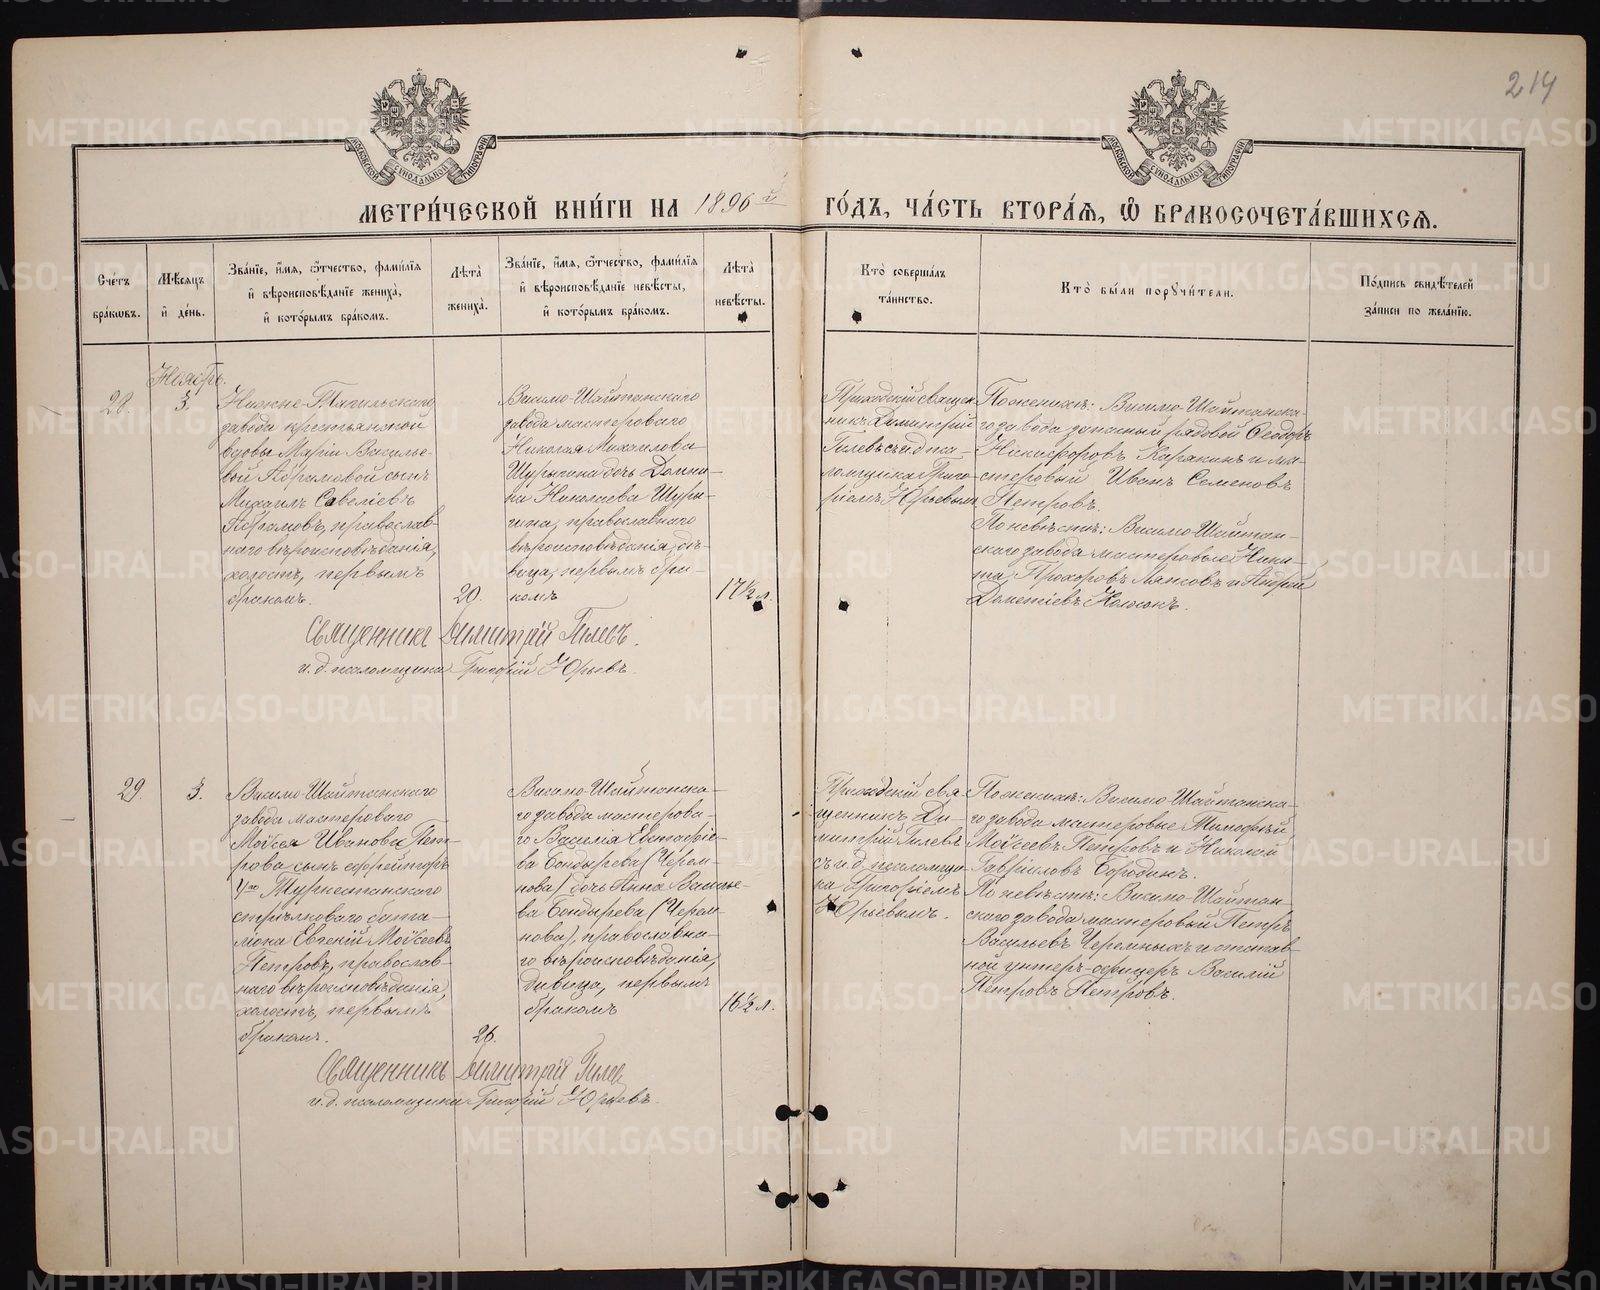 214
МЕТРИ́ЧЕСКОЙ КНИ́ГИ НА 1896й ГО́ДЪ, ЧА́СТЬ ВТОРА́Ѧ, Ѽ БРАКОСОЧЕТА́ВШИХСѦ.
Сче́тъ бра́кѡвъ.
Мѣ́сѧцъ и҆ де́нь.
Зва́нїе, и҆́мѧ, ѻ҆́тчество, фами́лїѧ
и҆ вѣроисповѣ́данїе жениха̀,
и҆ кото́рымъ бра́комъ.
Лѣта̀
жениха̀.
Зва́нїе, и҆́мѧ, ѻ҆́тчество, фами́лїѧ
и҆ вѣроисповѣ́данїе невѣ́сты,
и҆ кото́рымъ бра́комъ.
Лѣта̀
невѣ́сты.
Кто̀ соверша́лъ
та́инство.
Кто̀ бы́ли порꙋчи́тели.
По́дпись свидѣ́телей
за́писи по жела́нїю.
Ноябрь.
28.
3.
Нижне-Тагильскаго
завода крестьянской
вдовы Маріи Василье-
вой Абрамовой сынъ
Михаилъ Савеліевъ
Абрамовъ, православ-
наго вѣроисповѣданія,
холостъ, первымъ
бракомъ.
20.
Висимо-Шайтанскаго
завода мастероваго
Николая Михаилова
Шурыгина дочь Домни-
ка Николаева Шуры-
гина, православнаго
вѣроисповѣданія, дѣ-
вица, первымъ бра-
комъ
17½ л.
Приходскій священ
никъ Димитрій
Гилевъ съ и д пса-
ломщика Григо-
ріемъ Юрьевымъ
По женихѣ: Висимо-Шайтанска-
го завода запасный рядовой Ѳеодоръ
Никифоровъ Карякинъ и ма-
стеровый Иванъ Семеновъ
Петровъ.
По невѣстѣ: Висимо-Шайтан-
скаго завода мастеровые Ники-
та Прохоровъ и Андрей
Дометіевъ
Священникъ Димитрій Гилевъ.
и. д. псаломщика Григорій Юрьевъ.
29.
3.
Висимо-Шайтанскаго
завода мастероваго
Моѵсея Иванова Пет-
рова сынъ ефрейторъ
Туркестанскаго
стрѣлковаго бата-
ліона Евгеній Моѵсеевъ
Петровъ, православ-
наго вѣроисповѣданія,
холостъ, первымъ
бракомъ.
26.
Висимо-Шайтанска-
го завода мастерова-
го Василія Евстафіе-
ва Бондырева (Черем-
нова) дочь Анна Василье-
ва Бондырева (Черем-
нова), православна-
го вѣроисповѣданія,
дѣвица, первымъ
бракомъ
16½ л.
Приходскій свя-
щенникъ Ди-
митрій Гилевъ
съ и. д. псаломщи-
ка Григоріемъ
Юрьевымъ.
По женихѣ: Висимо-Шайтанска-
го завода мастеровые Тимофей
Моѵсеевъ Петровъ и Николай
Гавріиловъ Бородинъ.
По невѣстѣ: Висимо-Шайтан-
скаго завода мастеровый Петръ
Васильевъ Черемныхъ и отстав-
ной унтеръ-офицеръ Василій
Петровъ Петровъ.
Священникъ Димитрій Гилев
и. д. псаломщика Григорій Юрьевъ.
METRIKI.GASO-URAL.RU